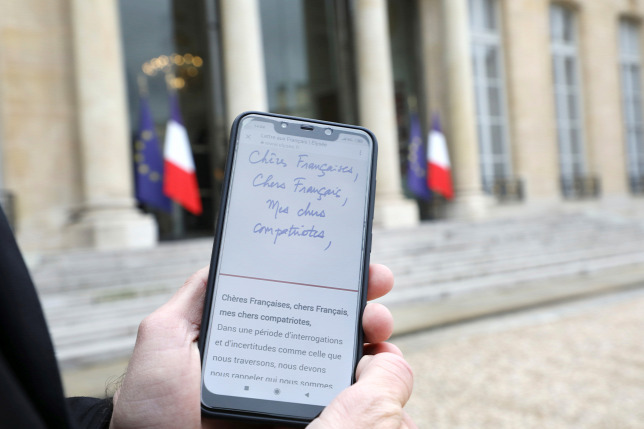 Lettre aux Français | Élysée
Chères Françaises,
Chers Français,
Mes chers
compatriotes,
Chères Françaises, chers Français,
mes chers compatriotes,
Dans une période d'interrogations
et d'incertitudes comme celle que
nous traversons, nous devons
nous rappeler qui nous sommes.